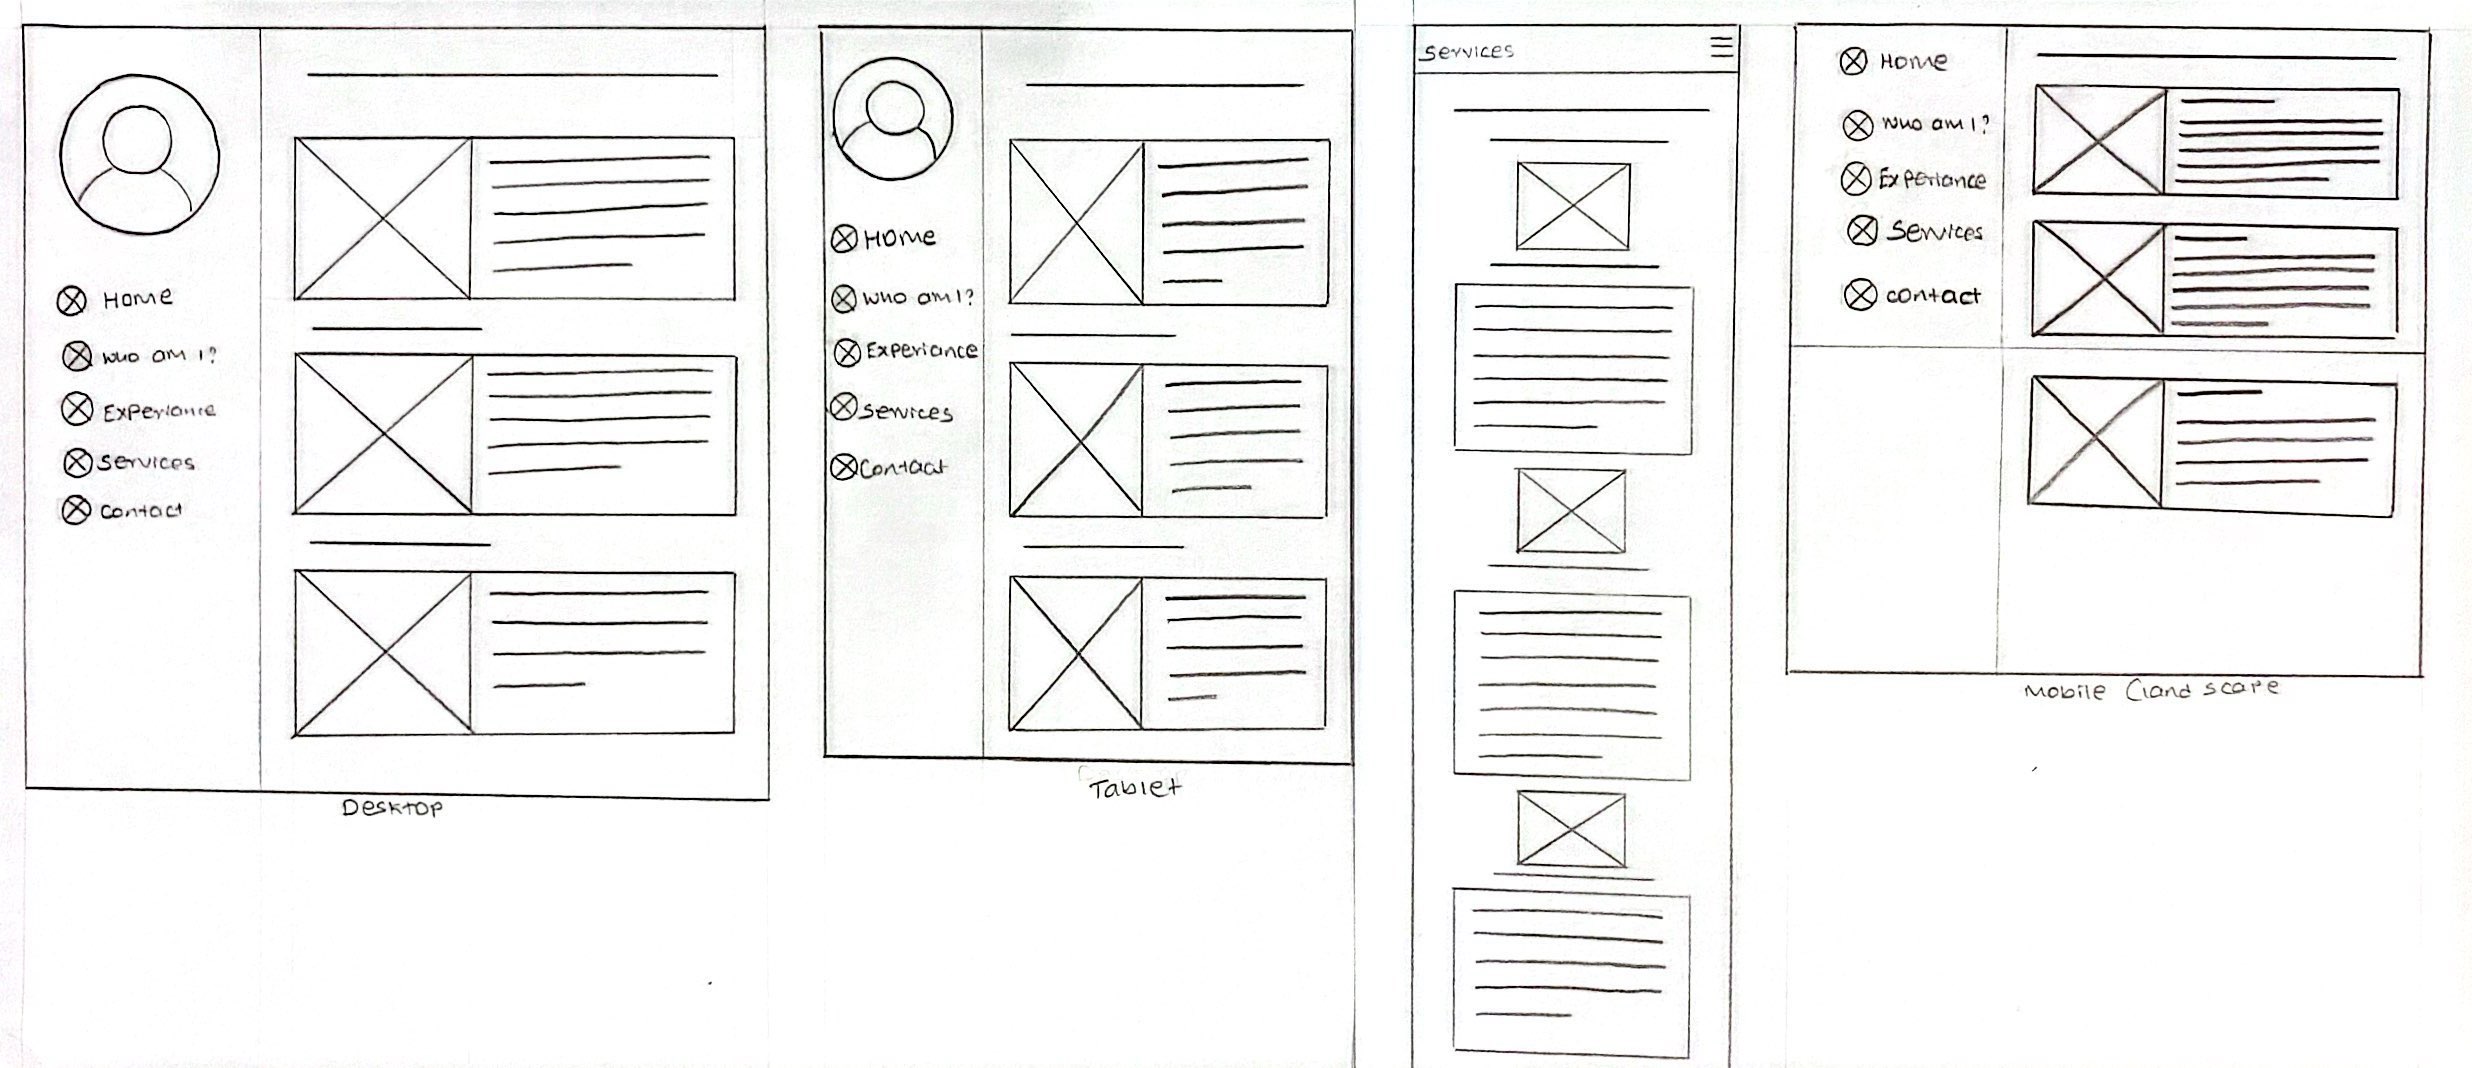 Home
who am I?
Experiance
Services
Contact
Desktop
Home
who am I?
Experiance
Services
Contact
Tablet
Services
Home
who am I?
Experiance
Services
contact
Mobile (landscape